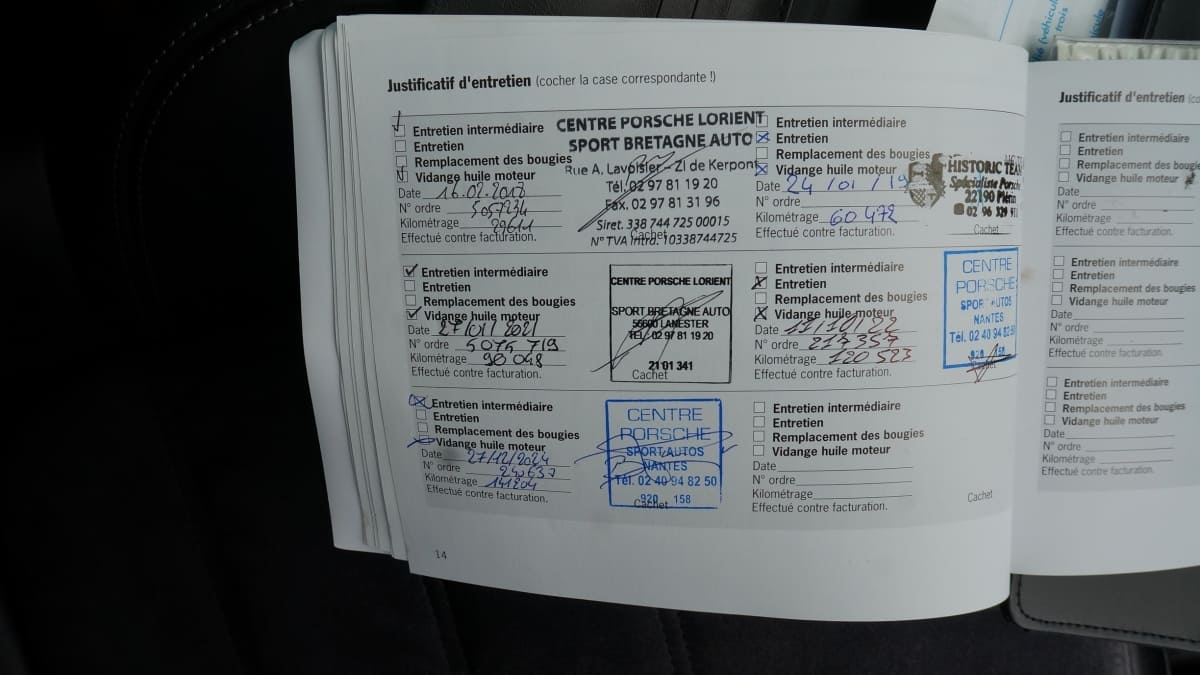 Justificatif d'entretien (cocher la case correspondante !)
Entretien intermédiaire
Entretien
Remplacement des bougies
Vidange huile moteur
Date 16.02.2018
N° ordre 5057234
Kilométrage
Effectué contre facturation.
CENTRE PORSCHE LORIENT
SPORT BRETAGNE AUTO
Rue A. Lavoisier - ZI de Kerpont
Tél. 02 97 81 19 20
Fax. 02 97 81 31 96
Siret. 338 744 725 00015
N° TVA Intra. 10338744725
Cachet
Entretien intermédiaire
Entretien
Remplacement des bougies
Vidange huile moteur
Date 24/01/19
N° ordre
Kilométrage 60 472
Effectué contre facturation.
HISTORIC TEAM
Spécialiste Porsche
22190 Plérin
02 96 329
Cachet
Entretien intermédiaire
Entretien
Remplacement des bougies
Vidange huile moteur
Date 27/01/2021
N° ordre 5075 719
Kilométrage 90 048
Effectué contre facturation.
CENTRE PORSCHE LORIENT
SPORT BRETAGNE AUTO
56600 LANESTER
TEL. 02 97 81 19 20
21 01 341
Cachet
Entretien intermédiaire
Entretien
Remplacement des bougies
Vidange huile moteur
Date 11/10/22
N° ordre 217357
Kilométrage 120 523
Effectué contre facturation.
CENTRE
PORSCHE
SPORT AUTOS
NANTES
Tél. 02 40 94 82 50
920 158
Cachet
Entretien intermédiaire
Entretien
Remplacement des bougies
Vidange huile moteur
Date 27/12/2024
N° ordre 240637
Kilométrage 141204
Effectué contre facturation.
CENTRE
PORSCHE
SPORT AUTOS
NANTES
Tél. 02 40 94 82 50
920 158
Cachet
Entretien intermédiaire
Entretien
Remplacement des bougies
Vidange huile moteur
Date
N° ordre
Kilométrage
Effectué contre facturation.
Cachet
14
Justificatif d'entretien (co
Entretien intermédiaire
Entretien
Remplacement des bougies
Vidange huile moteur
Date
N° ordre
Kilométrage
Effectué contre facturation.
Entretien intermédiaire
Entretien
Remplacement des bougies
Vidange huile moteur
Date
N° ordre
Kilométrage
Effectué contre facturation.
Entretien intermédiaire
Entretien
Remplacement des bougies
Vidange huile moteur
Date
N° ordre
Kilométrage
Effectué contre facturation.
(véhicule
trois